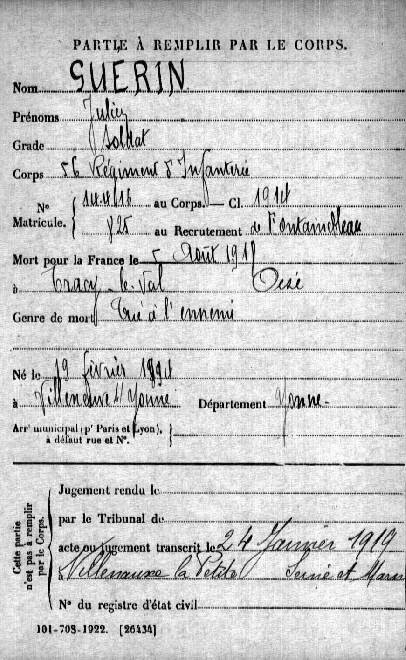 PARTIE À REMPLIR PAR LE CORPS.
Nom GUERIN
Prénoms Julien
Grade Soldat
Corps 56 Régiment d'Infanterie
N° Matricule. { 14.4/16 au Corps. — Cl. 1914
825 au Recrutement de Fontainebleau
Mort pour la France le 5 Août 1918
à Tracy-le-Val Oise
Genre de mort Tué à l'ennemi
Né le 19 février 1894
à Villeneuve s/ Yonne Département Yonne
Arrt municipal (pr Paris et Lyon), à défaut rue et N°. }
Cette partie n'est pas à remplir par le Corps.
Jugement rendu le
par le Tribunal de
acte ou jugement transcrit le 24 Janvier 1919
Villenauxe la Petite Seine et Marne
N° du registre d'état civil
101-708-1922. [26434]